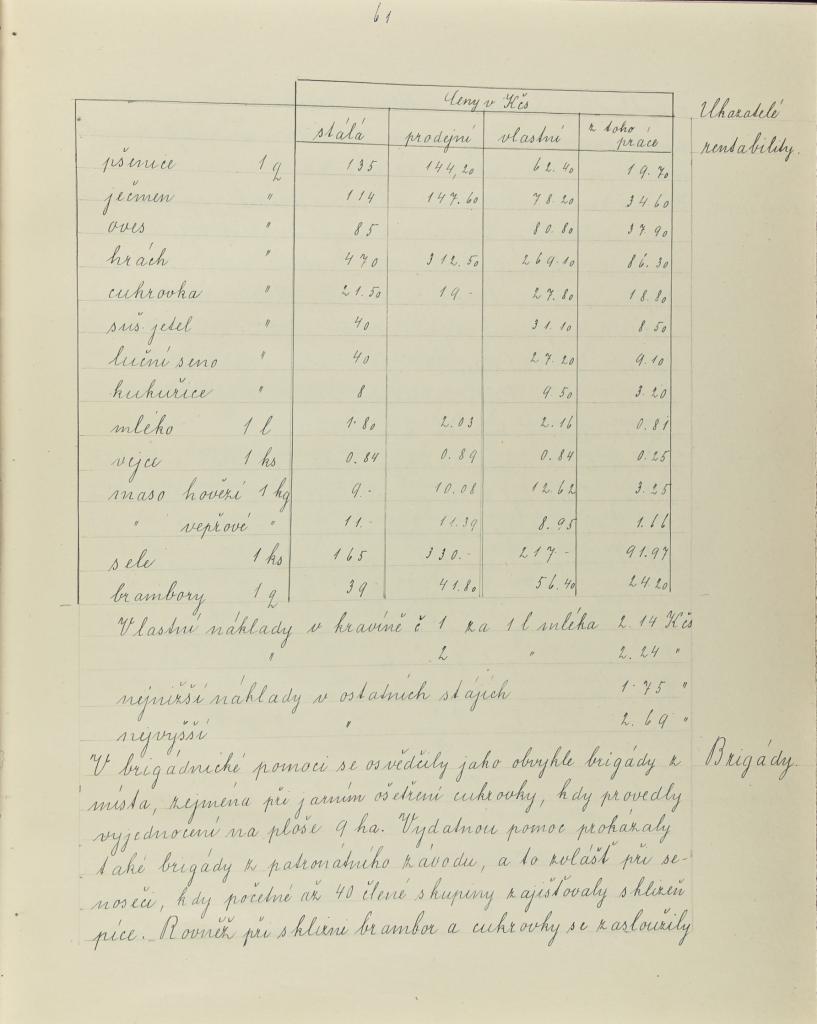 61
Ceny v Kčs
Ukazatelé
stálá prodejní vlastní z toho práce
rentability.
pšenice 1 q 135 144,20 62.40 19.70
ječmen " 114 147.60 78.20 34.60
oves " 85 80.80 37.90
hrách " 470 312.50 269.10 86.30
cukrovka " 21.50 19.- 27.80 18.80
suš. jetel " 40 31.10 8.50
luční seno " 40 27.20 9.10
kukuřice " 8 9.50 3.20
mléko 1 l 1.80 2.03 2.16 0.81
vejce 1 ks 0.84 0.89 0.84 0.25
maso hovězí 1 kg 9.- 10.08 12.62 3.25
" vepřové " 11.- 11.39 8.95 1.66
sele 1 ks 165 330.- 217.- 91.97
brambory 1 q 39 41.80 56.40 24.20
Vlastní náklady v kravíně č 1 za 1 l mléka 2.14 Kčs
" 2 " 2.24 "
nejnižší náklady v ostatních stájích 1.75 "
nejvyšší " 2.69 "
V brigádnické pomoci se osvědčily jako obvykle brigády z
Brigády.
místa, zejména při jarním ošetření cukrovky, kdy provedly
vyjednocení na ploše 9 ha. Vydatnou pomoc prokázaly
také brigády z patronátního závodu, a to zvlášť při se-
noseči, kdy početné až 40 člené skupiny zajišťovaly sklizeň
píce. Rovněž při sklizni brambor a cukrovky se zasloužily